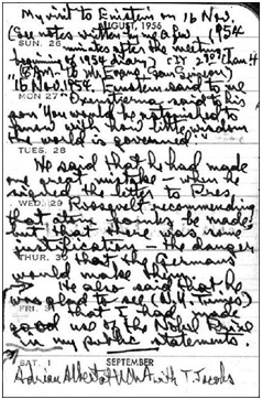 My visit to Einstein on 16 Nov.
AUGUST, 1956
(See notes written by me a few 1954
SUN. 26 minutes after the meeting,
beginning of 1954 diary)
16 Nov. 1954. Einstein said to me
MON 27 Oxenstierna said to his
son You would be astonished to
know with how little wisdom
the world is governed.
TUES. 28
He said that he had made
one great mistake - when he
signed the letter to Pres.
WED. 29 Roosevelt recommending
that atom bombs be made;
but that there was some
justification - the danger
THUR. 30 that the Germans
would make them.
He also said that he
was glad to see (N.Y. Times)
FRI. 31 that I had made
good use of the Nobel Prize
in my public statements.
SAT. 1 SEPTEMBER
with T. Jacobs